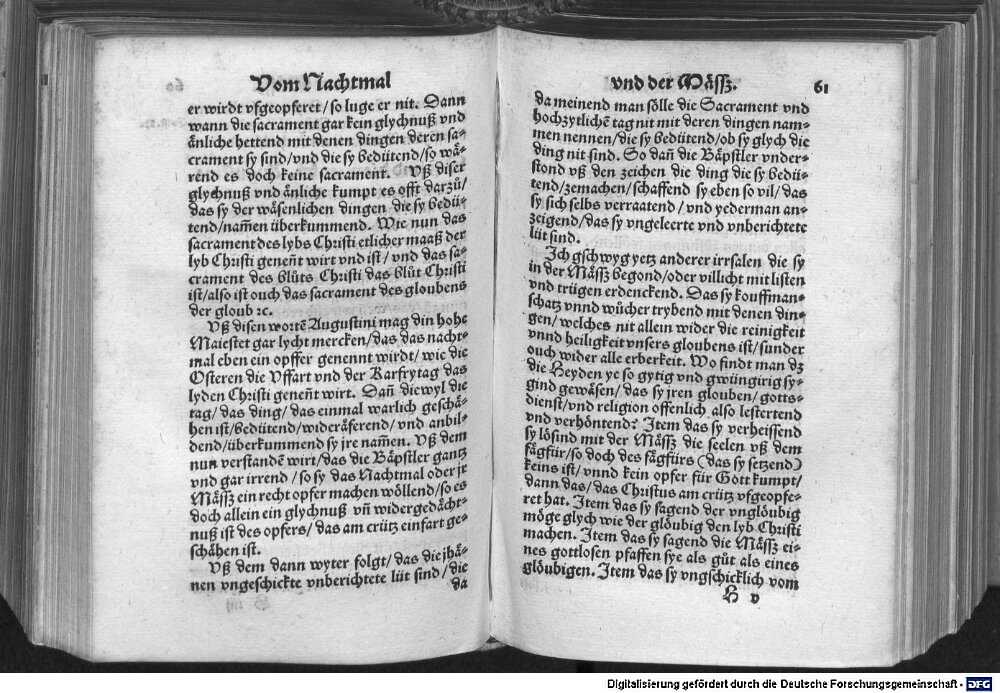 Vom Nachtmal
er wirdt vfgeopferet/so luge er nit. Dann
wann die sacrament gar kein glychnuß vnd
änliche hettend mit denen dingen deren sa-
crament sy sind/vnd die sy bedütend/so wä-
rend es doch keine sacrament. Vß diser
glychnuß vnd änliche kumpt es offt darzů/
das sy der wäsenlichen dingen die sy bedü-
tend/nam̄en überkummend. Wie nun das
sacrament des lybs Christi etlicher maaß der
lyb Christi genen̄t wirt vnd ist/vnd das sa-
crament des blůts Christi das blůt Christi
ist/also ist ouch das sacrament des gloubens
der gloub ꝛc.
Vß disen wortē Augustini mag din hohe
Maiestet gar lycht mercken/das das nacht-
mal eben ein opffer genennt wirdt/wie die
Osteren die Vffart vnd der Karfrytag das
lyden Christi genen̄t wirt. Dan̄ diewyl die
tag/das ding/das einmal warlich geschä-
hen ist/bedütend/wideräferend/vnd anbil-
dend/überkummend sy jre nam̄en. Vß dem
nun verstandē wirt/das die Bäpstler gantz
vnd gar irrend/so sy das Nachtmal oder jr
Mäſſz ein recht opfer machen wöllend/so es
doch allein ein glychnuß vn̄ widergedächt-
nuß ist des opfers/das am crütz einfart ge-
schähen ist.
Vß dem dann wyter folgt/das die jhä-
nen vngeschickte vnberichtete lüt sind/die
da
vnd der Mäſſz. 61
da meinend man sölle die Sacrament vnd
hochzytlichē tag nit mit deren dingen nam-
men nennen/die sy bedütend/ob sy glych die
ding nit sind. So dan̄ die Bäpstler vnder-
stond vß den zeichen die ding die sy bedü-
tend/zemachen/schaffend sy eben so vil/das
sy sich selbs verraatend/vnd yederman an-
zeigend/das sy vngeleerte vnd vnberichtete
lüt sind.
Ich gschwyg yetz anderer irrsalen die sy
in der Mäſſz begond/oder villicht mit listen
vnd trügen erdenckend. Das sy kouffman-
schatz vnnd wůcher trybend mit denen din-
gen/welches nit allein wider die reinigkeit
vnnd heiligkeit vnsers gloubens ist/sunder
ouch wider alle erberkeit. Wo findt man dz
die Heyden ye so gytig vnd gwüngirig sy-
gind gewäsen/das sy jren glouben/gotts-
dienst/vnd religion offenlich also lestertend
vnd verhöntend? Item das sy verheissend
sy lösind mit der Mäſſz die seelen vß dem
fägfür/so doch des fägfürs (das sy setzend)
keins ist/vnnd kein opfer für Gott kumpt/
dann das/das Christus am crütz vfgeopfe-
ret hat. Item das sy sagend der vnglöubig
möge glych wie der glöubig den lyb Christi
machen. Item das sy sagend die Mäſſz ei-
nes gottlosen pfaffen sye als gůt als eines
glöubigen. Item das sy vngschicklich vom
H v
Digitalisierung gefördert durch die Deutsche Forschungsgemeinschaft - DFG